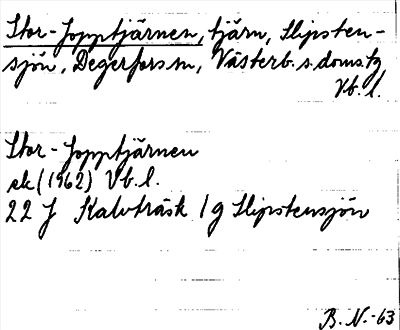 Stor-Jopptjärnen, tjärn, Slipsten-
sjön, Degerfors sn, Västerb. s. domstg
Vb. l.
Stor-Jopptjärnen
ek (1962) Vb. l.
22 J Kalvträsk 1 g Slipstensjön
B. N. -63